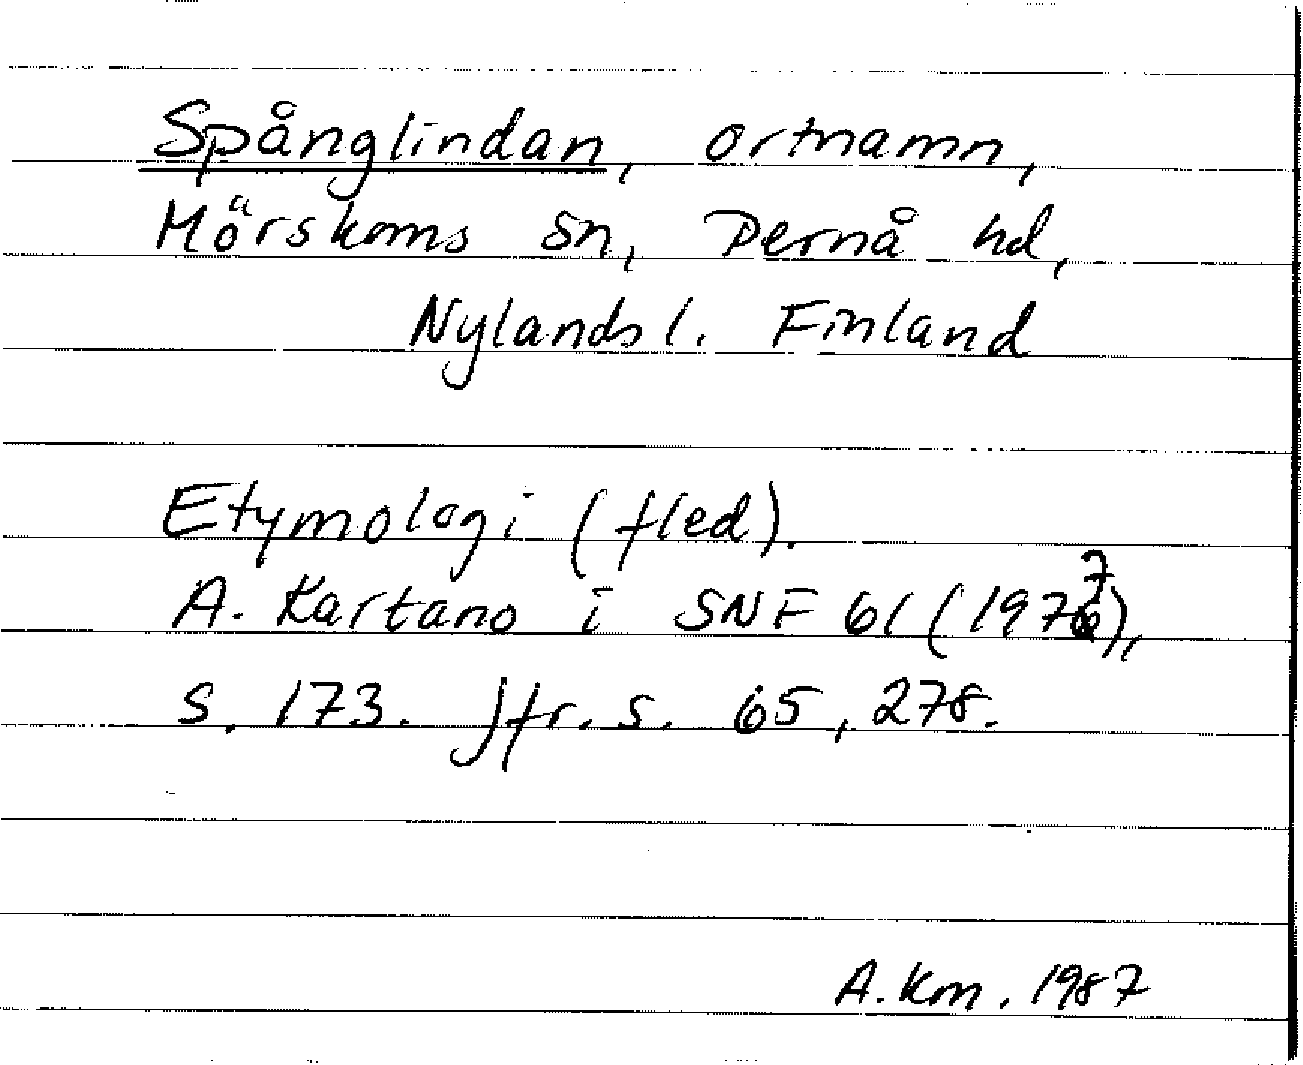 Spånglindan, ortnamn,
Mörskoms sn, Pernå hd,
Nylands l. Finland
Etymologi (fled).
A. Kartano i SNF 61 (1977),
s. 173. Jfr. s. 65, 278.
A. Km. 1987